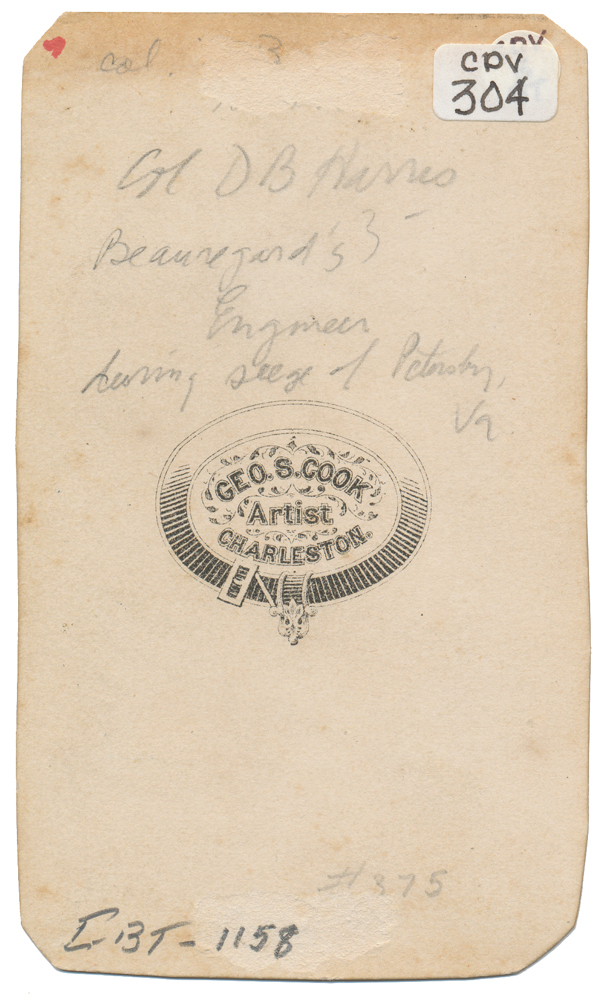 CDV
304
col. 3
Col D B Harris
Beauregard's
Engineer
during seege of Petersbg,
Va
GEO. S. COOK
Artist
CHARLESTON.
#375
BT-1158